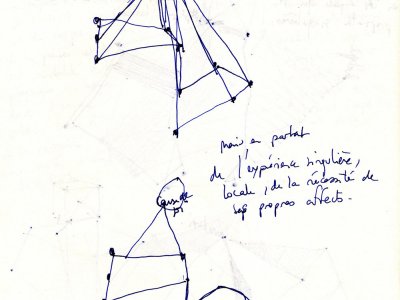 mais, en partant
de l'expérience singulière,
locale, de la nécessité de
ses propres affects.
Cause de
soi